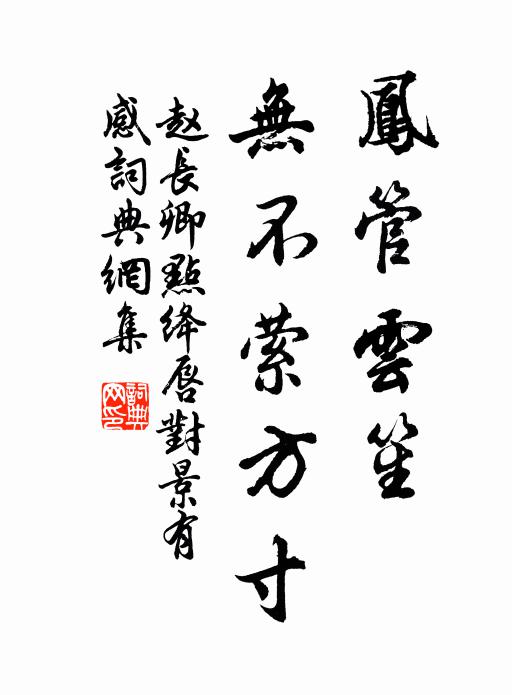 鳳管雲笙
無不縈方寸
赵長卿點絳唇對景有
感詞典網集
詞典
网印